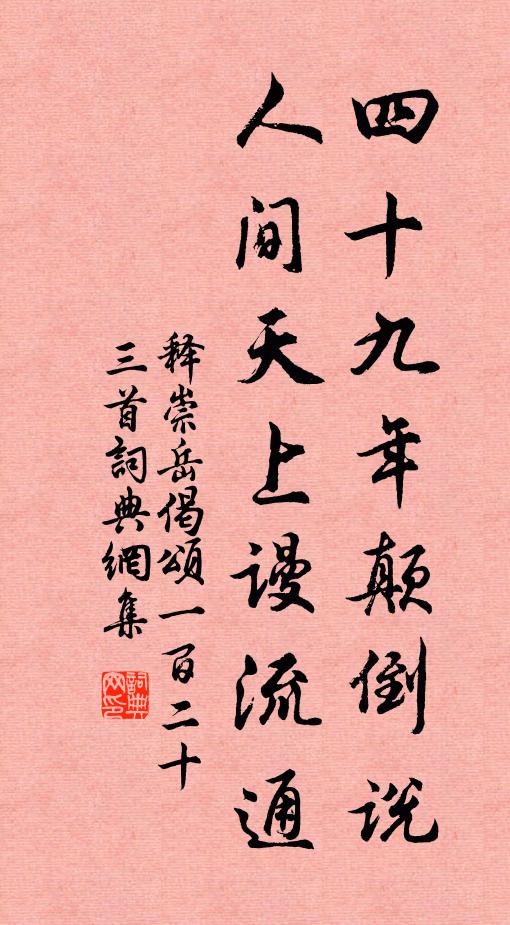 四十九年颠倒说
人间天上谩流通
释崇岳偈颂一百二十
三首词典网集